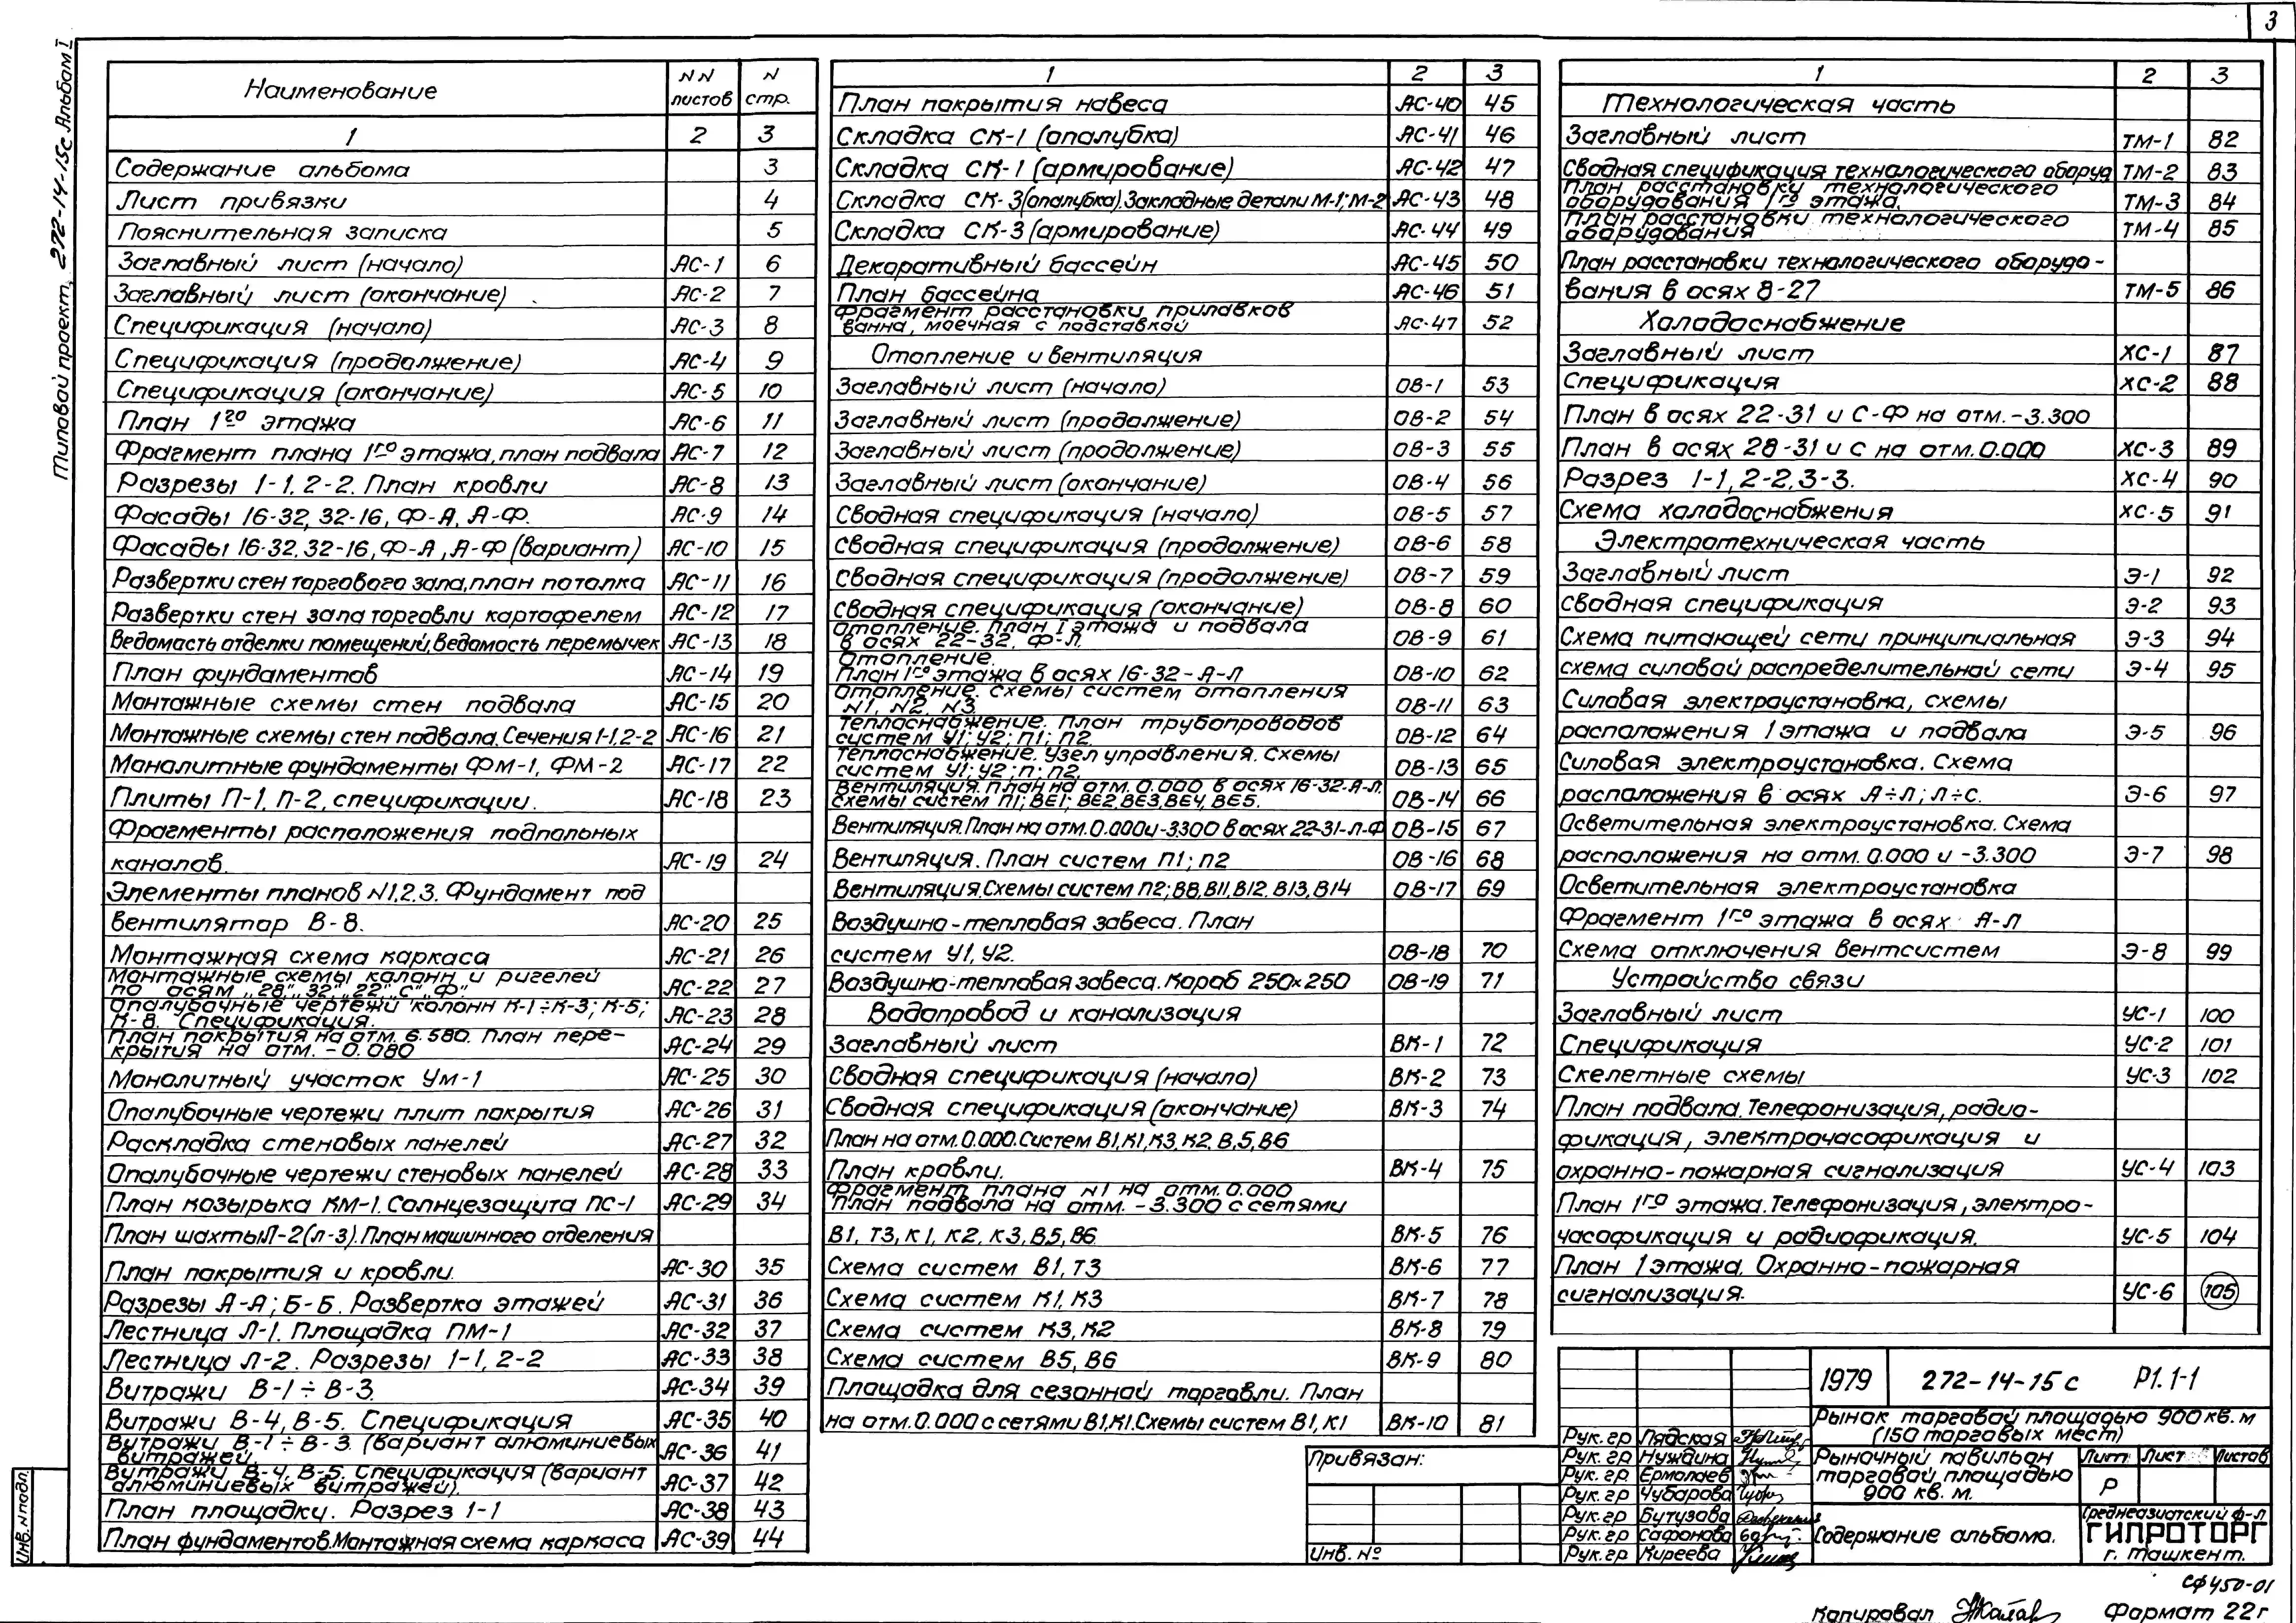 3
Типовой проект 272-14-15с Альбом I
Наименование NN листов N стр.
1 2 3
Содержание альбома 3
Лист привязки 4
Пояснительная записка 5
Заглавный лист (начало) АС-1 6
Заглавный лист (окончание) АС-2 7
Спецификация (начало) АС-3 8
Спецификация (продолжение) АС-4 9
Спецификация (окончание) АС-5 10
План 1го этажа АС-6 11
Фрагмент плана 1го этажа, план подвала АС-7 12
Разрезы 1-1, 2-2. План кровли АС-8 13
Фасады 16-32, 32-16, Ф-А, А-Ф. АС-9 14
Фасады 16-32, 32-16, Ф-А, А-Ф (вариант) АС-10 15
Развертки стен торгового зала, план потолка АС-11 16
Развертки стен зала торговли картофелем АС-12 17
Ведомость отделки помещений, ведомость перемычек АС-13 18
План фундаментов АС-14 19
Монтажные схемы стен подвала АС-15 20
Монтажные схемы стен подвала. Сечения 1-1, 2-2 АС-16 21
Монолитные фундаменты ФМ-1, ФМ-2 АС-17 22
Плиты П-1, П-2, спецификации. АС-18 23
Фрагменты расположения подпольных
каналов. АС-19 24
Элементы планов N1,2,3. Фундамент под
вентилятор В-8. АС-20 25
Монтажная схема каркаса АС-21 26
Монтажные схемы колонн и ригелей
по осям „28”, „32”, „22”, „С”, „Ф” АС-22 27
Опалубочные чертежи колонн К-1÷К-3; К-5;
К-8. Спецификация. АС-23 28
План покрытия на отм. 6.580. План пере-
крытия на отм. -0.080 АС-24 29
Монолитный участок Ум-1 АС-25 30
Опалубочные чертежи плит покрытия АС-26 31
Раскладка стеновых панелей АС-27 32
Опалубочные чертежи стеновых панелей АС-28 33
План козырька КМ-1. Солнцезащита ПС-1 АС-29 34
План шахты Л-2 (л-3). План машинного отделения
План покрытия и кровли. АС-30 35
Разрезы А-А; Б-Б. Развертка этажей АС-31 36
Лестница Л-1. Площадка ПМ-1 АС-32 37
Лестница Л-2. Разрезы 1-1, 2-2 АС-33 38
Витражи В-1÷В-3. АС-34 39
Витражи В-4, В-5. Спецификация АС-35 40
Витражи В-1÷В-3. (вариант алюминиевых
витражей). АС-36 41
Витражи В-4, В-5. Спецификация (вариант
алюминиевых витражей). АС-37 42
План площадки. Разрез 1-1 АС-38 43
План фундаментов. Монтажная схема каркаса АС-39 44
1 2 3
План покрытия навеса АС-40 45
Складка СК-1 (опалубка) АС-41 46
Складка СК-1 (армирование) АС-42 47
Складка СК-3 (опалубка). Закладные детали М-1; М-2 АС-43 48
Складка СК-3 (армирование) АС-44 49
Декоративный бассейн АС-45 50
План бассейна АС-46 51
Фрагмент расстановки прилавков
ванна, моечная с подставкой АС-47 52
Отопление и вентиляция
Заглавный лист (начало) ОВ-1 53
Заглавный лист (продолжение) ОВ-2 54
Заглавный лист (продолжение) ОВ-3 55
Заглавный лист (окончание) ОВ-4 56
Сводная спецификация (начало) ОВ-5 57
Сводная спецификация (продолжение) ОВ-6 58
Сводная спецификация (продолжение) ОВ-7 59
Сводная спецификация (окончание) ОВ-8 60
Отопление. План I этажа и подвала
в осях 22-32, Ф-Л. ОВ-9 61
Отопление.
План 1го этажа в осях 16-32-А-Л ОВ-10 62
Отопление. Схемы систем отопления
N1, N2, N3. ОВ-11 63
Теплоснабжение. План трубопроводов
систем У1; У2; П1; П2. ОВ-12 64
Теплоснабжение. Узел управления. Схемы
систем У1; У2; П; П2. ОВ-13 65
Вентиляция. План на отм. 0.000 в осях 16-32-А-Л.
Схемы систем П1; ВЕ1; ВЕ2, ВЕ3, ВЕ4, ВЕ5. ОВ-14 66
Вентиляция. План на отм. 0.000 и -3.300 в осях 22-31-Л-Ф ОВ-15 67
Вентиляция. План систем П1; П2 ОВ-16 68
Вентиляция. Схемы систем П2; В8, В11, В12, В13, В14 ОВ-17 69
Воздушно-тепловая завеса. План
систем У1, У2. ОВ-18 70
Воздушно-тепловая завеса. Короб 250×250 ОВ-19 71
Водопровод и канализация
Заглавный лист ВК-1 72
Сводная спецификация (начало) ВК-2 73
Сводная спецификация (окончание) ВК-3 74
План на отм. 0.000. Систем В1, К1, К3, К2, В,5, В6
План кровли. ВК-4 75
Фрагмент плана N1 на отм. 0.000
План подвала на отм. -3.300 с сетями
В1, Т3, К1, К2, К3, В5, В6 ВК-5 76
Схема систем В1, Т3 ВК-6 77
Схема систем К1, К3 ВК-7 78
Схема систем К3, К2 ВК-8 79
Схема систем В5, В6 ВК-9 80
Площадка для сезонной торговли. План
на отм. 0.000 с сетями В1, К1. Схемы систем В1, К1 ВК-10 81
1 2 3
Технологическая часть
Заглавный лист ТМ-1 82
Сводная спецификация технологического оборуд ТМ-2 83
План расстановки технологического
оборудования 1го этажа. ТМ-3 84
План расстановки технологического
оборудования ТМ-4 85
План расстановки технологического оборудо-
вания в осях 8-27 ТМ-5 86
Холодоснабжение
Заглавный лист ХС-1 87
Спецификация ХС-2 88
План в осях 22-31 и С-Ф на отм. -3.300
План в осях 28-31 и С на отм. 0.000 ХС-3 89
Разрез 1-1, 2-2, 3-3. ХС-4 90
Схема холодоснабжения ХС-5 91
Электротехническая часть
Заглавный лист Э-1 92
Сводная спецификация Э-2 93
Схема питающей сети принципиальная Э-3 94
схема силовой распределительной сети Э-4 95
Силовая электроустановка, схемы
расположения 1 этажа и подвала Э-5 96
Силовая электроустановка. Схема
расположения в осях А÷Л; Л÷С. Э-6 97
Осветительная электроустановка. Схема
расположения на отм. 0.000 и -3.300 Э-7 98
Осветительная электроустановка
Фрагмент 1го этажа в осях А-Л
Схема отключения вентсистем Э-8 99
Устройство связи
Заглавный лист УС-1 100
Спецификация УС-2 101
Скелетные схемы УС-3 102
План подвала. Телефонизация, радио-
фикация, электрочасофикация и
охранно-пожарная сигнализация УС-4 103
План 1го этажа. Телефонизация, электро-
часофикация и радиофикация. УС-5 104
План 1 этажа. Охранно-пожарная
сигнализация. УС-6 105
1979 272-14-15с Р1.1-1
Рынок торговой площадью 900 кв.м
(150 торговых мест)
Рук.гр Лядская
Рук.гр Нуждина
Рук.гр Ермолаев
Рук.гр Чубарова
Рук.гр Бутузова
Рук.гр Сафонова
Рук.гр Киреева
Рыночный павильон
торговой площадью
900 кв. м.
Лит Лист Листов
Р
Содержание альбома.
Среднеазиатский ф-л
ГИПРОТОРГ
г. Ташкент.
Привязан:
Инв. №
Инв. N подл.
СФ450-01
Копировал Формат 22г